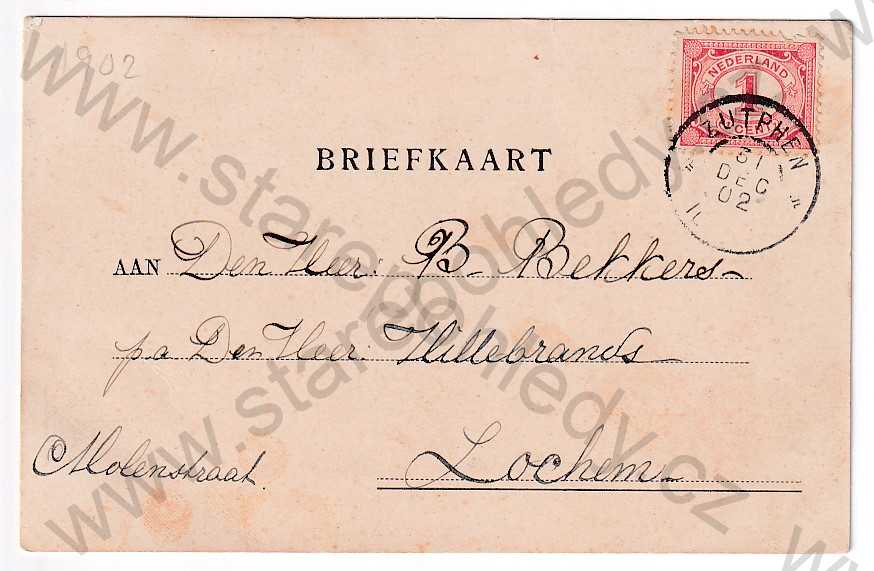 1902
NEDERLAND
1
CENT
ZUTPHEN
31
DEC
02
BRIEFKAART
AAN Den Heer: B. Bekkers
p/a Den Heer: Hillebrands
Molenstraat. Lochem
www.starepohledy.cz
www.starepohledy.cz